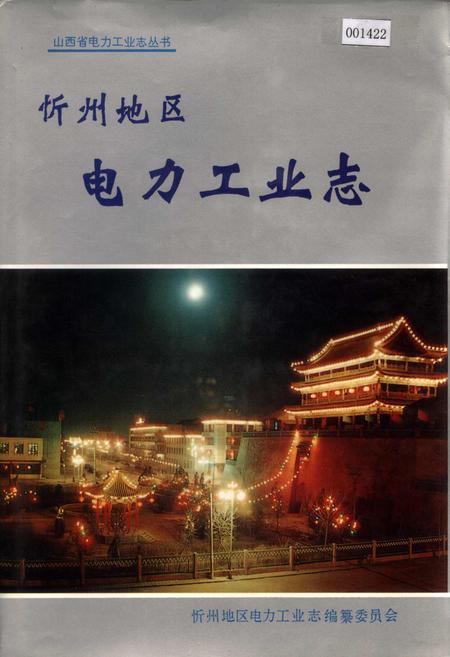 山西省电力工业志丛书
001422
忻州地区
电力工业志
忻州地区电力工业志编纂委员会